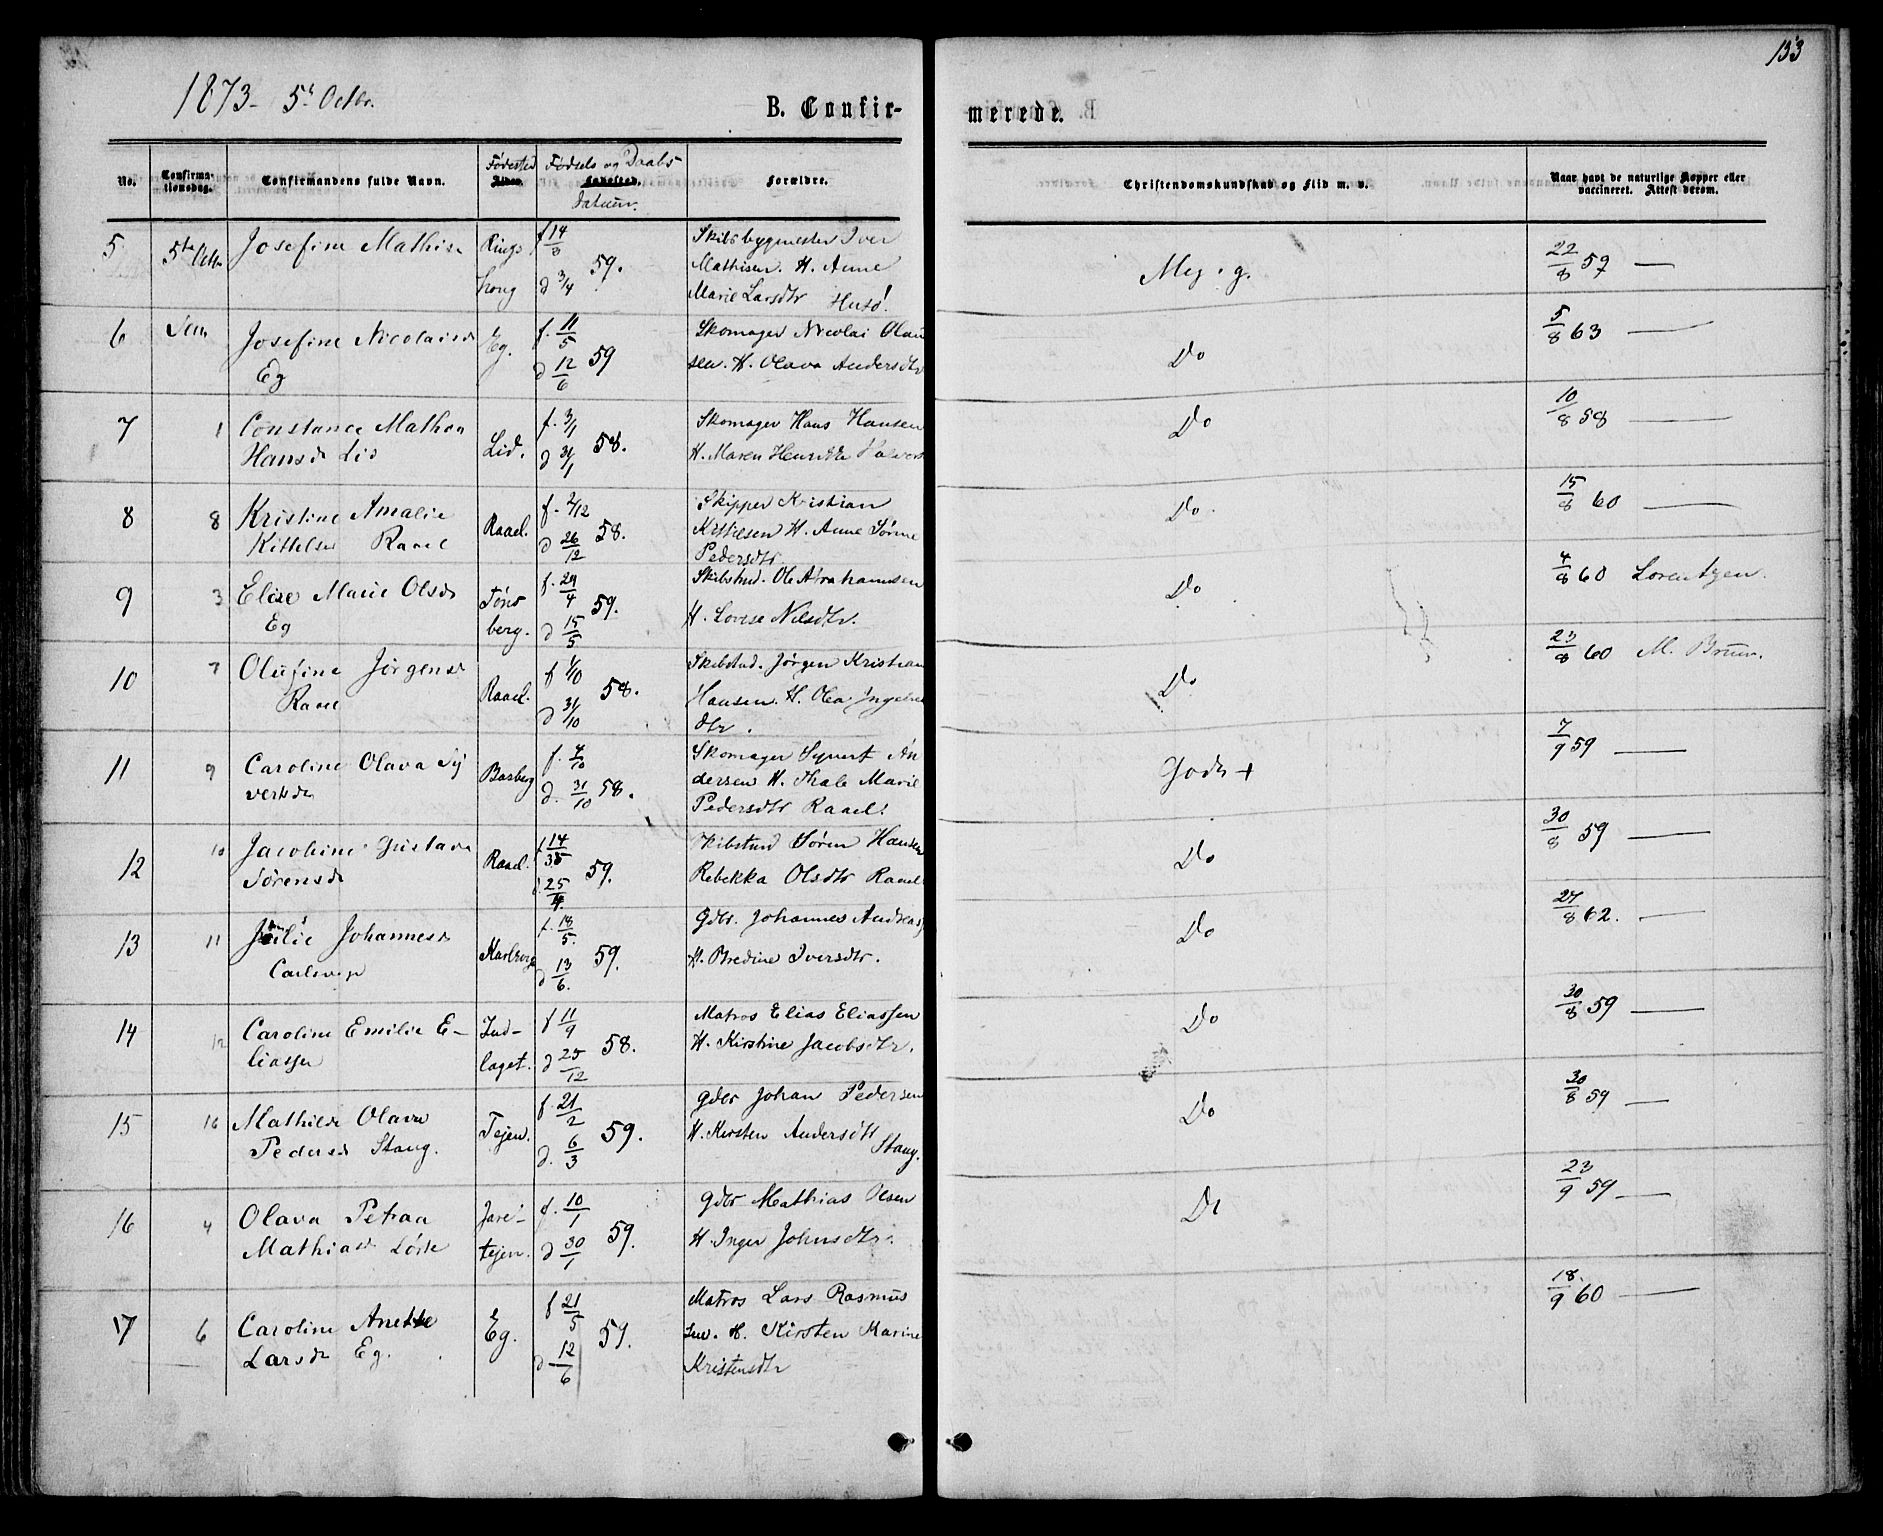 153
1873 - 5t Octbr.
B. Confir-
merede.
No.
Confirma-
tionsdag.
Confirmandens fulde Navn.
Fødested
Alder.
Fødsels og Daabs-
Fødested.
Datum.
Forældre.
Christendomskundskab og Flid m. v.
Naar havt de naturlige Kopper eller
vaccineret. Attest derom.
5 5te Octb Josefine Mathis Rings
houg f 14/3 d 3/4 59. Skibsbygmester Iver
Mathisen. H. Anne
Marie Larsdtr Husø! Meg. g. 22/8 59 —
6 Sem Josefine Nicolaisd
Eg Eg. f. 11/5 d 12/6 59 Skomager Nicolai Olau
sen. H. Olava Andersdtr Do 5/8 63 —
7 1 Constance Mathea
Hansd Lid Lid. f. 3/1 d 31/1 58. Skomager Hans Hansen
H. Maren Henrikke Halvors Do 10/8 58 —
8 8 Kristine Amalie
Kittelsd Raael Raael. f. 2/12 d 26/12 58. Skipper Kristian
Kittilsen H. Anne Sørine
Pedersdtr Do. 15/8 60 —
9 3 Elise Marie Olsdr
Eg Tøns
berg. f. 29/4 d 15/5 59. Skibstud. Ole Abrahamsen
H. Lovise Nilsdtr. Do 4/8 60 Lorentzen.
10 7 Olufine Jørgensd
Raael Raael. f 1/10 d 31/10 58. Skibstud. Jørgen Kristian
Hansen. H. Olea Ingebr
dtr. Do 23/8 60 M. Bruun.
11 9 Caroline Olava Sy
vertsdr Basberg f. 4/10 d. 31/10 58. Skomager Syvert An
dersen H. Thale Marie
Pedersdtr Raael! Godt + 7/9 59 —
12 10 Jacobine Gustava
Sørensd Raael. f 14/3 d. 25/4 59. Skibstud Søren Hansen
Rebekka Olsdtr Raael. Do 30/8 59 —
13 11 Julie Johannesd
Carlsvege Karlsvege f. 18/5. d 13/6. 59. Gdbr. Johannes Andreas
H. Bredine Iversdtr. Do 27/8 62. —
14 12 Caroline Emilie E-
liassen Ind-
laget. f 11/9 d 25/12 58. Matros Elias Eliassen
H. Kirstine Jacobsdtr. Do 30/8 59 —
15 16 Mathilde Olava
Pedersd Stang. Tejen. f. 21/2 d. 6/3 59. Gdbr Johan Pedersen
H. Kirsten Andersdtr
Stang. Do 30/8 59 —
16 4 Olava Petrea
Mathiasd Lofte Jare-
tejen. f. 10/1 d 30/1 59. Gdbr Mathias Olsen
H. Inger Johnsdtr. Do 23/9 59 —
17 6 Caroline Anette
Larsdr Eg. Eg. f 21/5 d 12/6 59. Matros Lars Rasmus
sen. H. Kirsten Marine
Kristensdtr 18./9 60 —